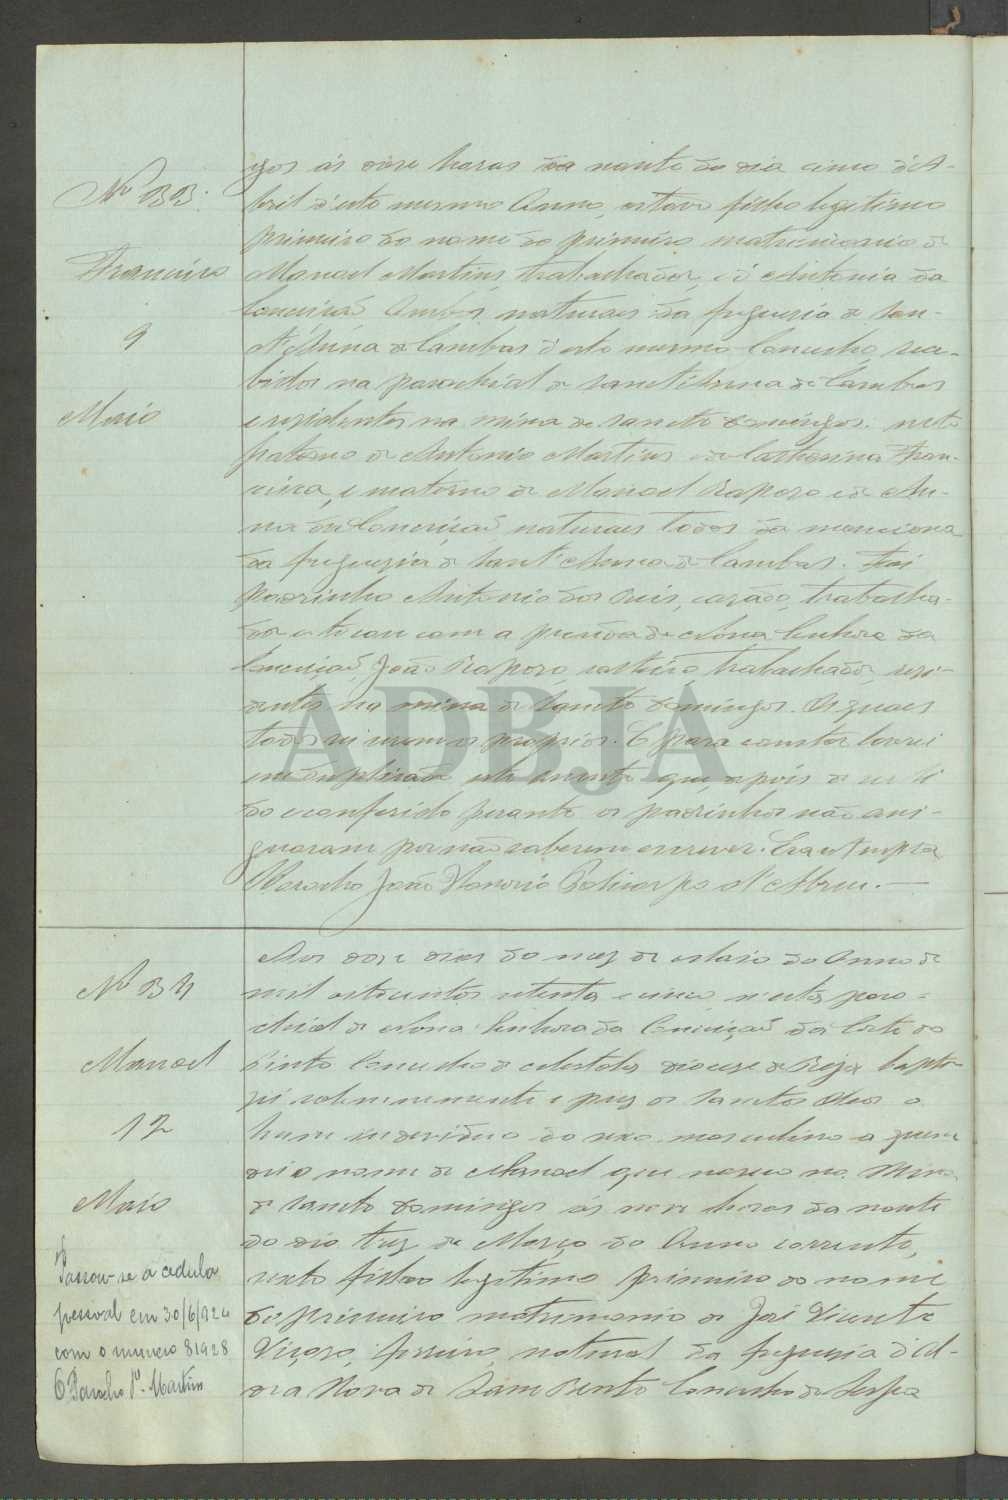 gos ás onze horas da noute do dia cinco d'A-
bril d'este mesmo Anno, oitavo filho legitimo
primeiro do nome do primeiro matrimonio de
Manoel Martins, trabalhador, e d'Antonia da
Conceição Ambos naturaes da freguezia de San-
t'Anna de Cambas d'este mesmo Concelho, rece-
bidos na parochial de Sanct'Anna de Cambas
e residentes na mina de Sancto Domingos: neto
paterno de Antonio Martins e de Catharina Fran-
cisca, e materno de Manoel Raposo e de An-
na da Conceição, naturaes todos da menciona
da freguezia de Sant'Anna de Cambas. Foi
Padrinho Antonio dos Reis, casado, trabalha-
dor e tocou com a prenda de Nossa Senhora da
Conceição, João Raposo, solteiro, trabalhador, resi-
dentes na mina de Sancto Domingos. Os quaes
todos sei serem os proprios. E para constar lavrei
em duplicado este assento que, depois de ser li
do e conferido perante os padrinhos não assi-
gnaram por não saberem escrever. Era ut supra
O Parocho João Honorio Policarpo d'Abreu.
Nº 33.
Francisco
9
Maio
Aos doze dias do mez de Maio do Anno de
mil oitocentos setenta e cinco, n'esta paro-
chial de Nossa Senhora da Conceição da Corte do
Pinto Concelho de Mertola diocese de Beja bapti-
zei solemnemente e puz os Sanctos Oleos a
hum individuo do sexo masculino a quem
dei o nome de Manoel que nasceu na Mina
de Sancto Domingos ás nove horas da noute
do dia trez de Março do Anno corrente,
sexto filho legitimo primeiro do nome
do primeiro matrimonio de José Vicente
Viçoso, ferreiro, natural da freguezia d'Al-
dea Nova de Sam Bento Concelho de Serpa
Nº 34
Manoel
12
Maio
Passou-se a cedula
pessoal em 30/6/924
com o numero 81928
O Parocho Pe. Martins
ADBJA